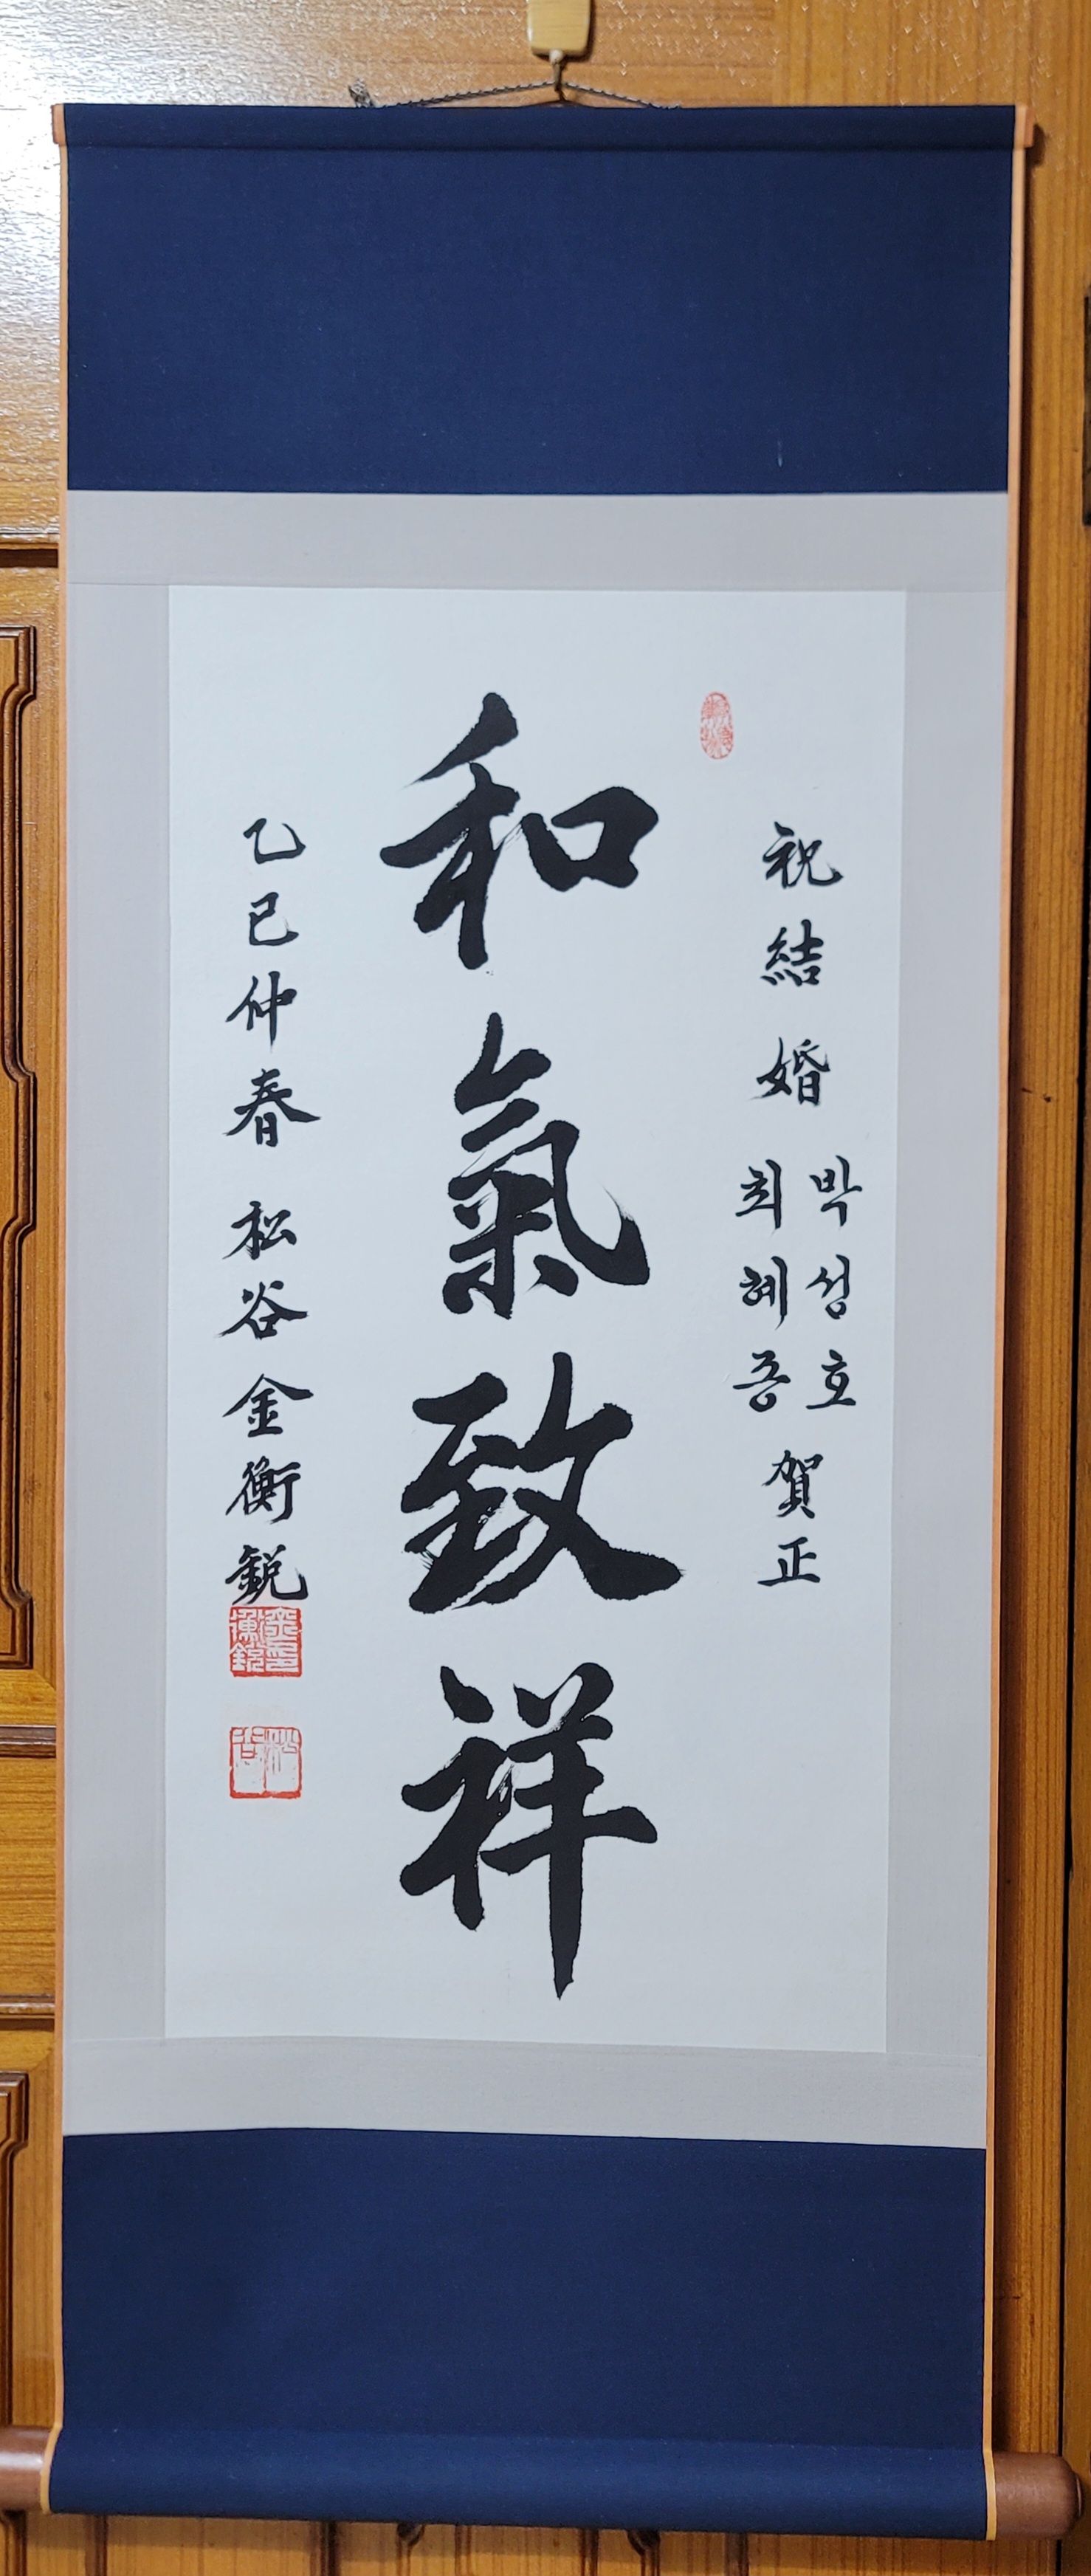 祝結婚 박성호 최혜종 賀正
和氣致祥
乙巳仲春 松谷 金衡銳